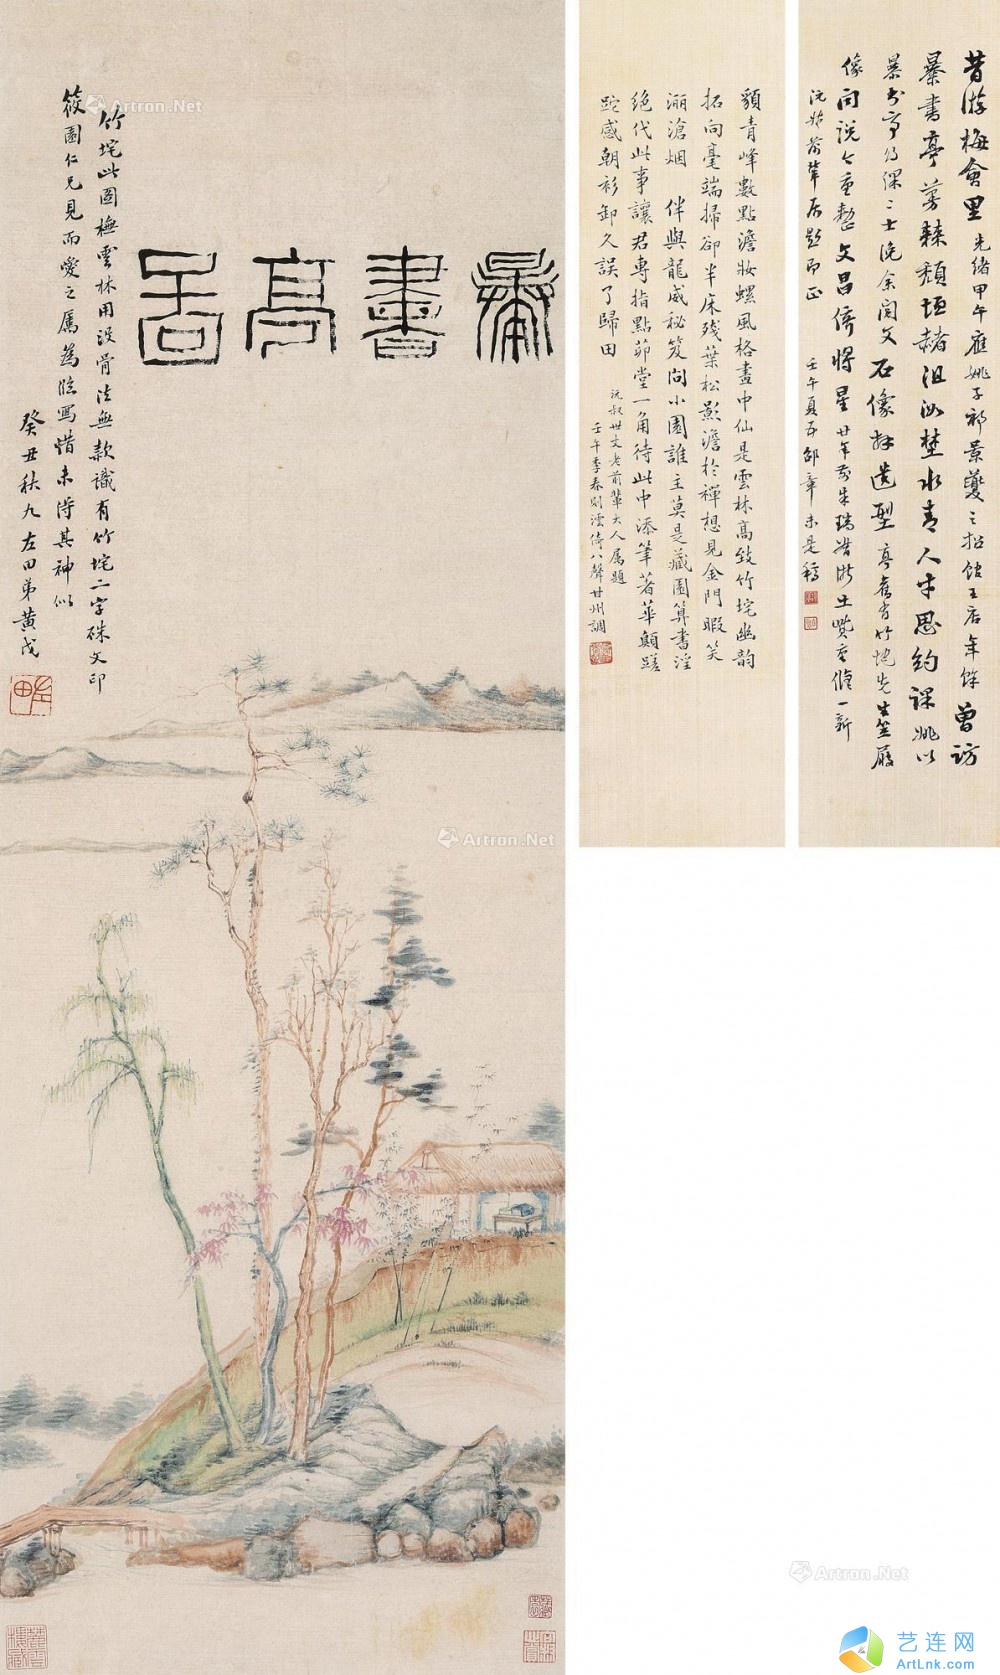 暴書亭啚
竹垞此圖橅雲林用沒骨法無款識有竹垞二字硃文印
筱園仁兄見而愛之屬為臨寫惜未得其神似
癸丑秋九左田弟黃戉
左田
額青峰數點澹妝螺風格畫中仙是雲林高致竹垞幽韵
拓向毫端掃卻半床殘葉松影澹於禪想見金門暇笑
滄烟 伴與龍威秘笈問小園誰主莫是藏園算書淫
絕代此事讓君專指點茆堂一角待此中添筆著華顛蹉
跎感朝衫卸久誤了歸田
沅叔世丈老前輩大人屬題
壬午季春則澐倚八聲甘州調
昔游梅會里 光緒甲午應姚子祁景夔之招館王店年餘 曾訪
暴書亭 蔓棘頹垣赭沮洳埜水青人中思約課姚以
暴書亭 課士 余閱文 石像拜遺型 亭舊有竹垞先生笠屐
像 問說今重整文昌儕將星 廿年前朱瑞 重脩一新
沅叔前輩屬題即正
壬午夏五邵章未是稿
Artron.Net
Artron.Net
Artron.Net
Artron.Net
艺连网
ArtLnk.com